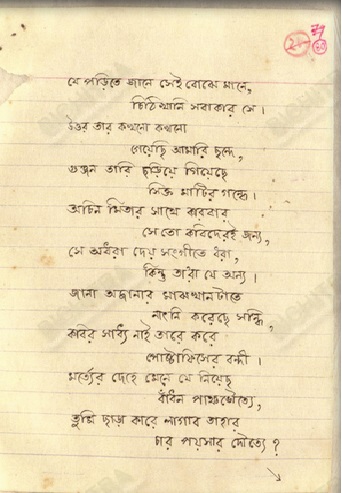 যে পড়িতে জানে সেই বোঝে মানে,
চিঠিখানি সবাকার সে।
উত্তর তার কখনো কখনো
পেয়েছি আমারি ছন্দে,
গুঞ্জন তারি ছড়িয়ে গিয়েছে
সিক্ত মাটির গন্ধে।
অচিন মিতার সাথে কারবার
সে তো কবিদেরই জন্য,
সে অধরা দেয় সংগীতে ধরা,
কিন্তু তারা যে অন্য।
জানা অজানার মাঝখানটাতে
নাৎনি করেছে সন্ধি,
কবির সাধ্য নাই তারে করে
পোস্টোফিসের বন্দী।
মর্ত্যের দেহে মেনে যে নিয়েছে
বাঁধন পাঞ্চভৌত্যে,
তুমি ছাড়া কারে লাগাব তাহার
চার পয়সার দৌত্যে?